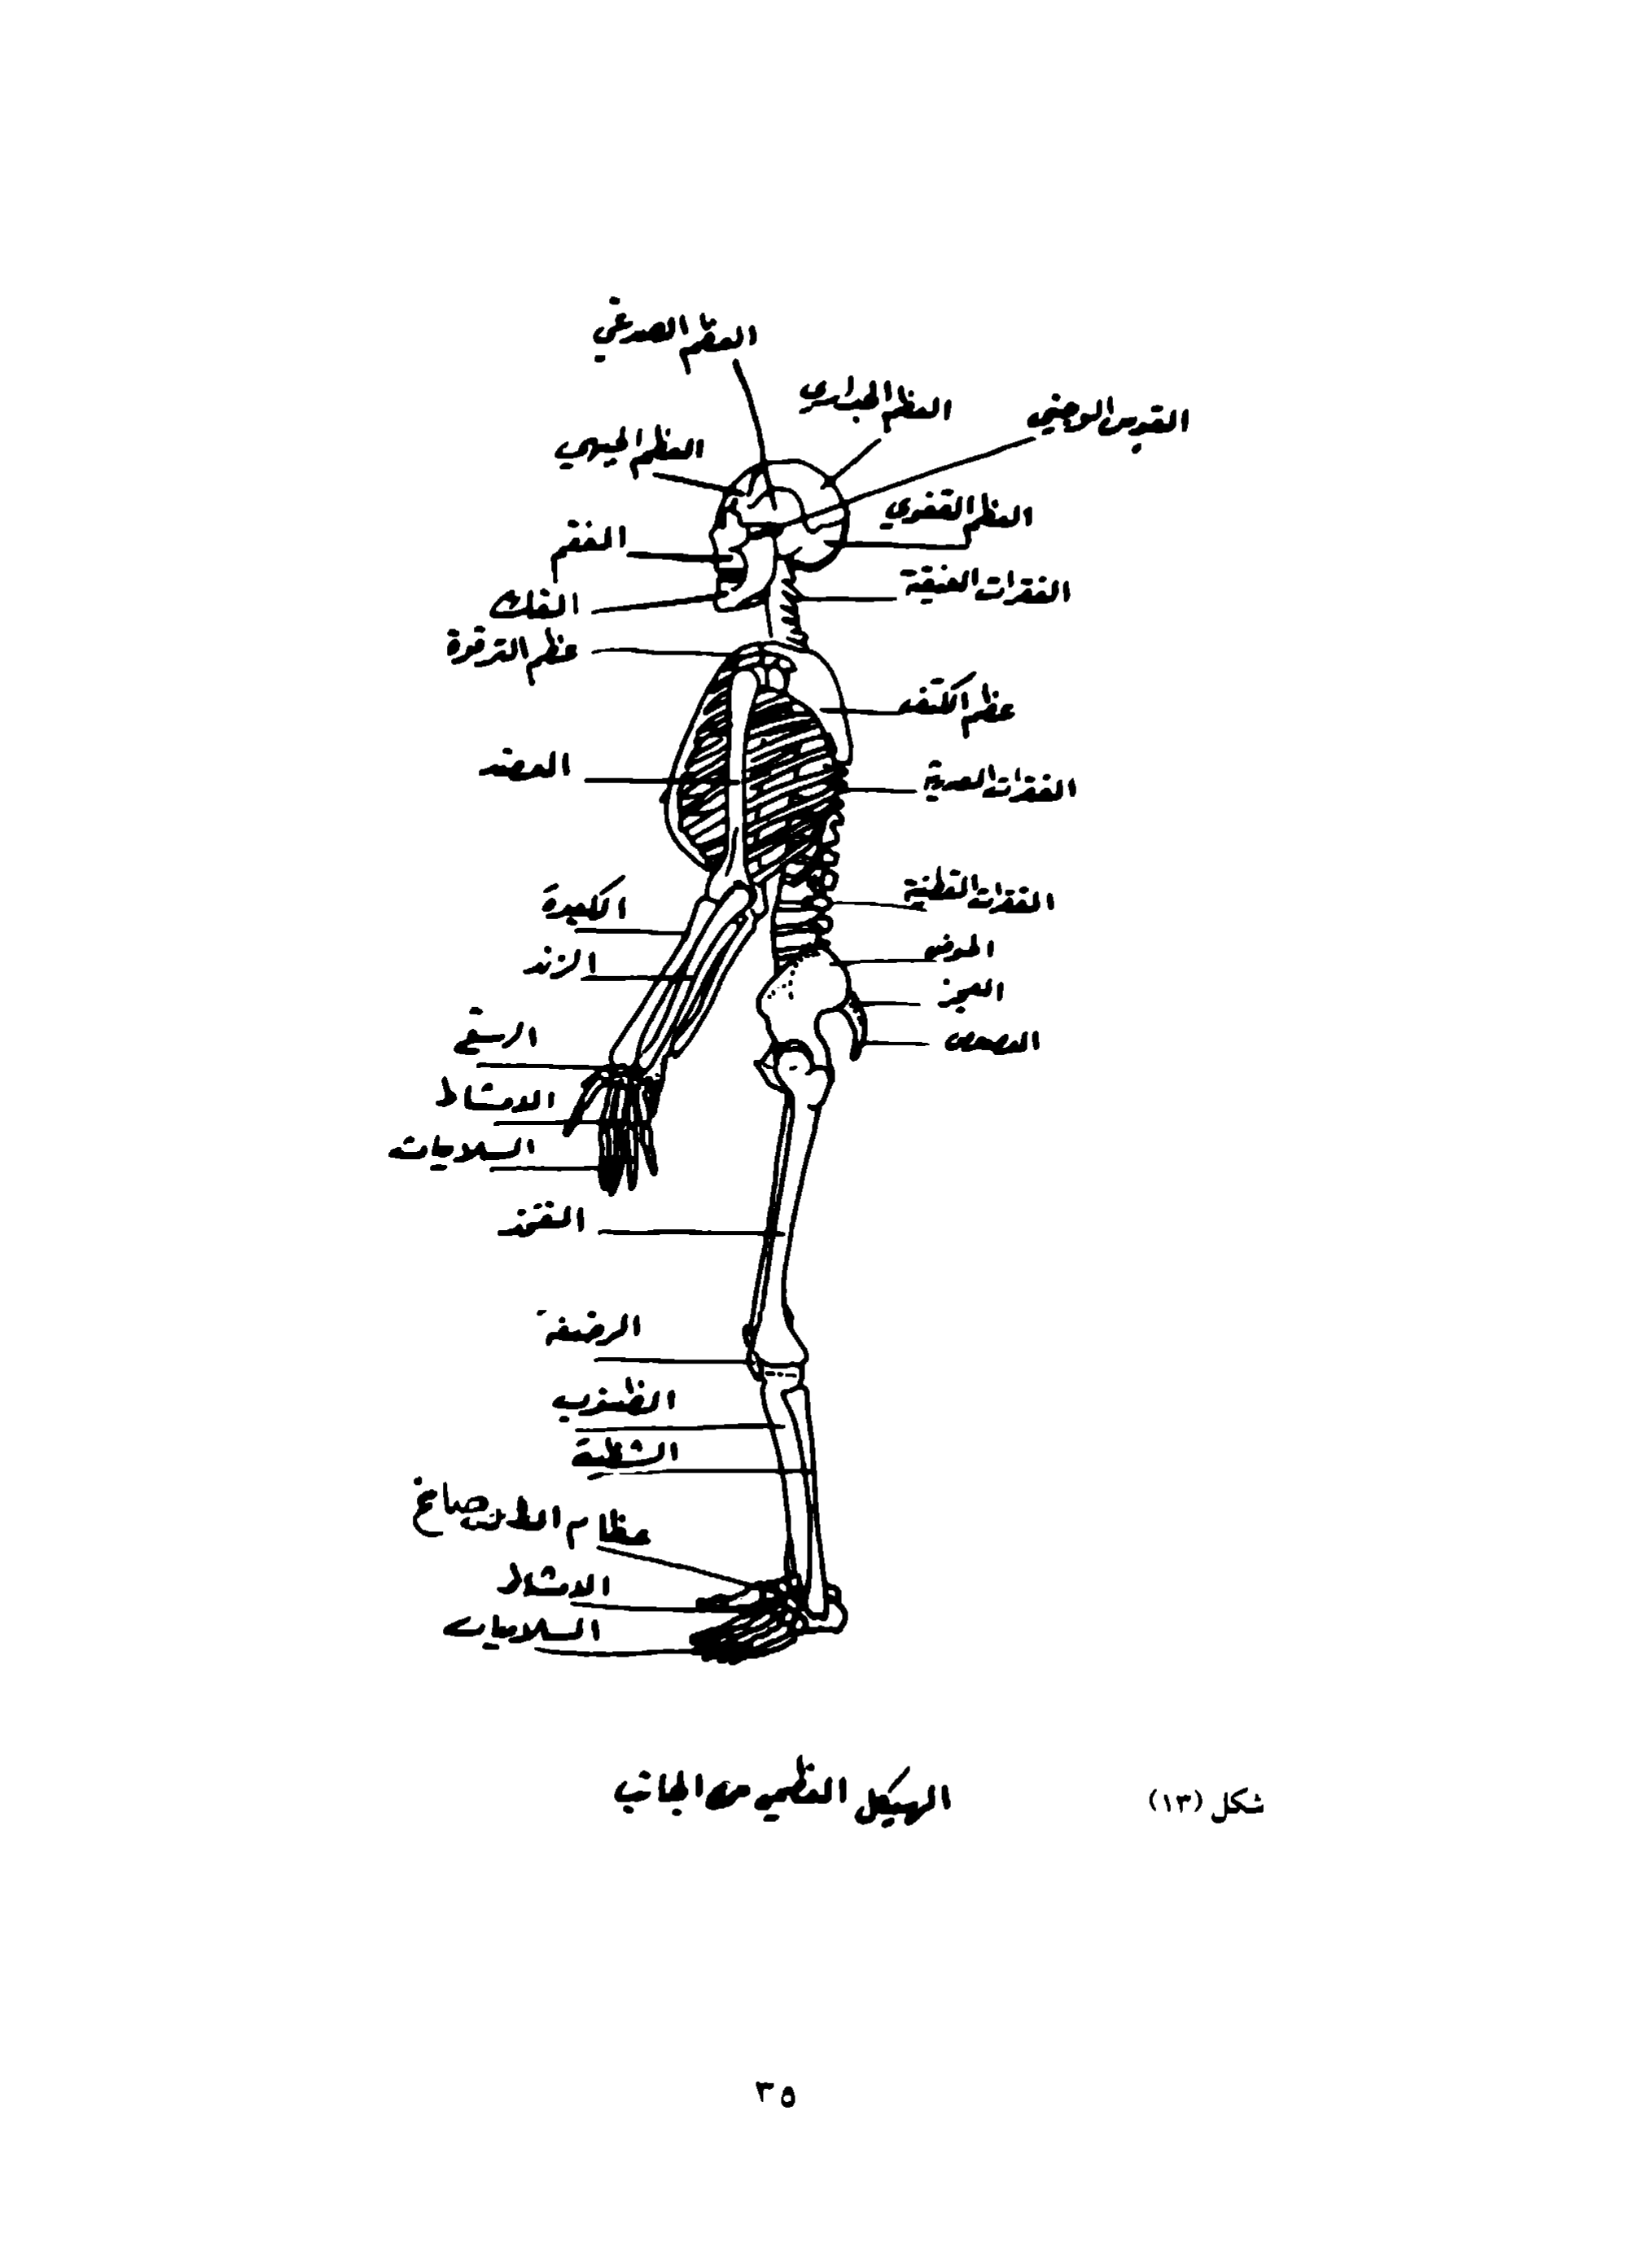 العظم الصدغي
العظم الجداري
القوس الوجني
العظم الجبهي
العظم القفوي
الفقم
الفقرات العنقية
الفك
عظم الترقوة
عظم الكتف
العضد
الفقرات الصدرية
الكعبرة
الفقرات القطنية
الحوض
الزند
العجز
الرسغ
العصعص
الامشاط
السلاميات
الفخذ
الرضفة
الظنبوب
الشظية
عظام
الامشاط
السلاميات
الهيكل العظمي من الجانب
شكل (١٣)
٣٥